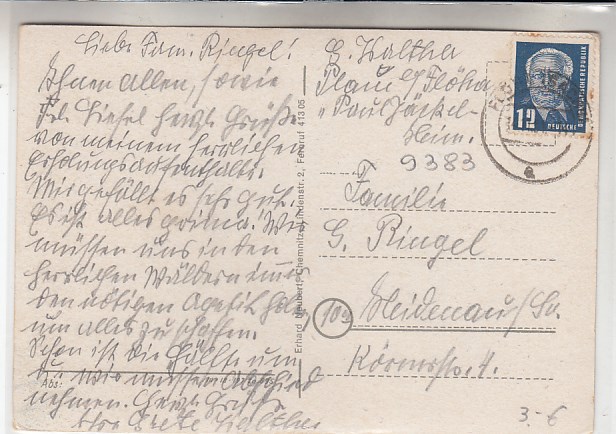 Liebe Fam. Ringel!
Ihnen allen, sowie
Frl. Liesel herzl. Grüße
von meinem herrlichen
Erholungsaufenthalt.
Mir gefällt es sehr gut.
Es ist alles prima! Wir
müssen uns in den
herrlichen Wäldern immer
den nötigen Apetit holen
um alles zu schaffen.
Schon ist die Hälfte um
u. wir müssen Abschied
nehmen. Herzl. Grüße
Ihre Grete Walther
Abs:
Erhard Neubert, Chemnitz, Lindenstr. 2, Fernruf 413 05
G. Walther
Plaue b/ Flöha
"Paul Jäckel-
Heim.
9383
12
DEUTSCHE
DEMOKRATISCHE REPUBLIK
a
Familie
G. Ringel
10a
Heidenau/ Sa.
Körnerstr. 4.
3.-6